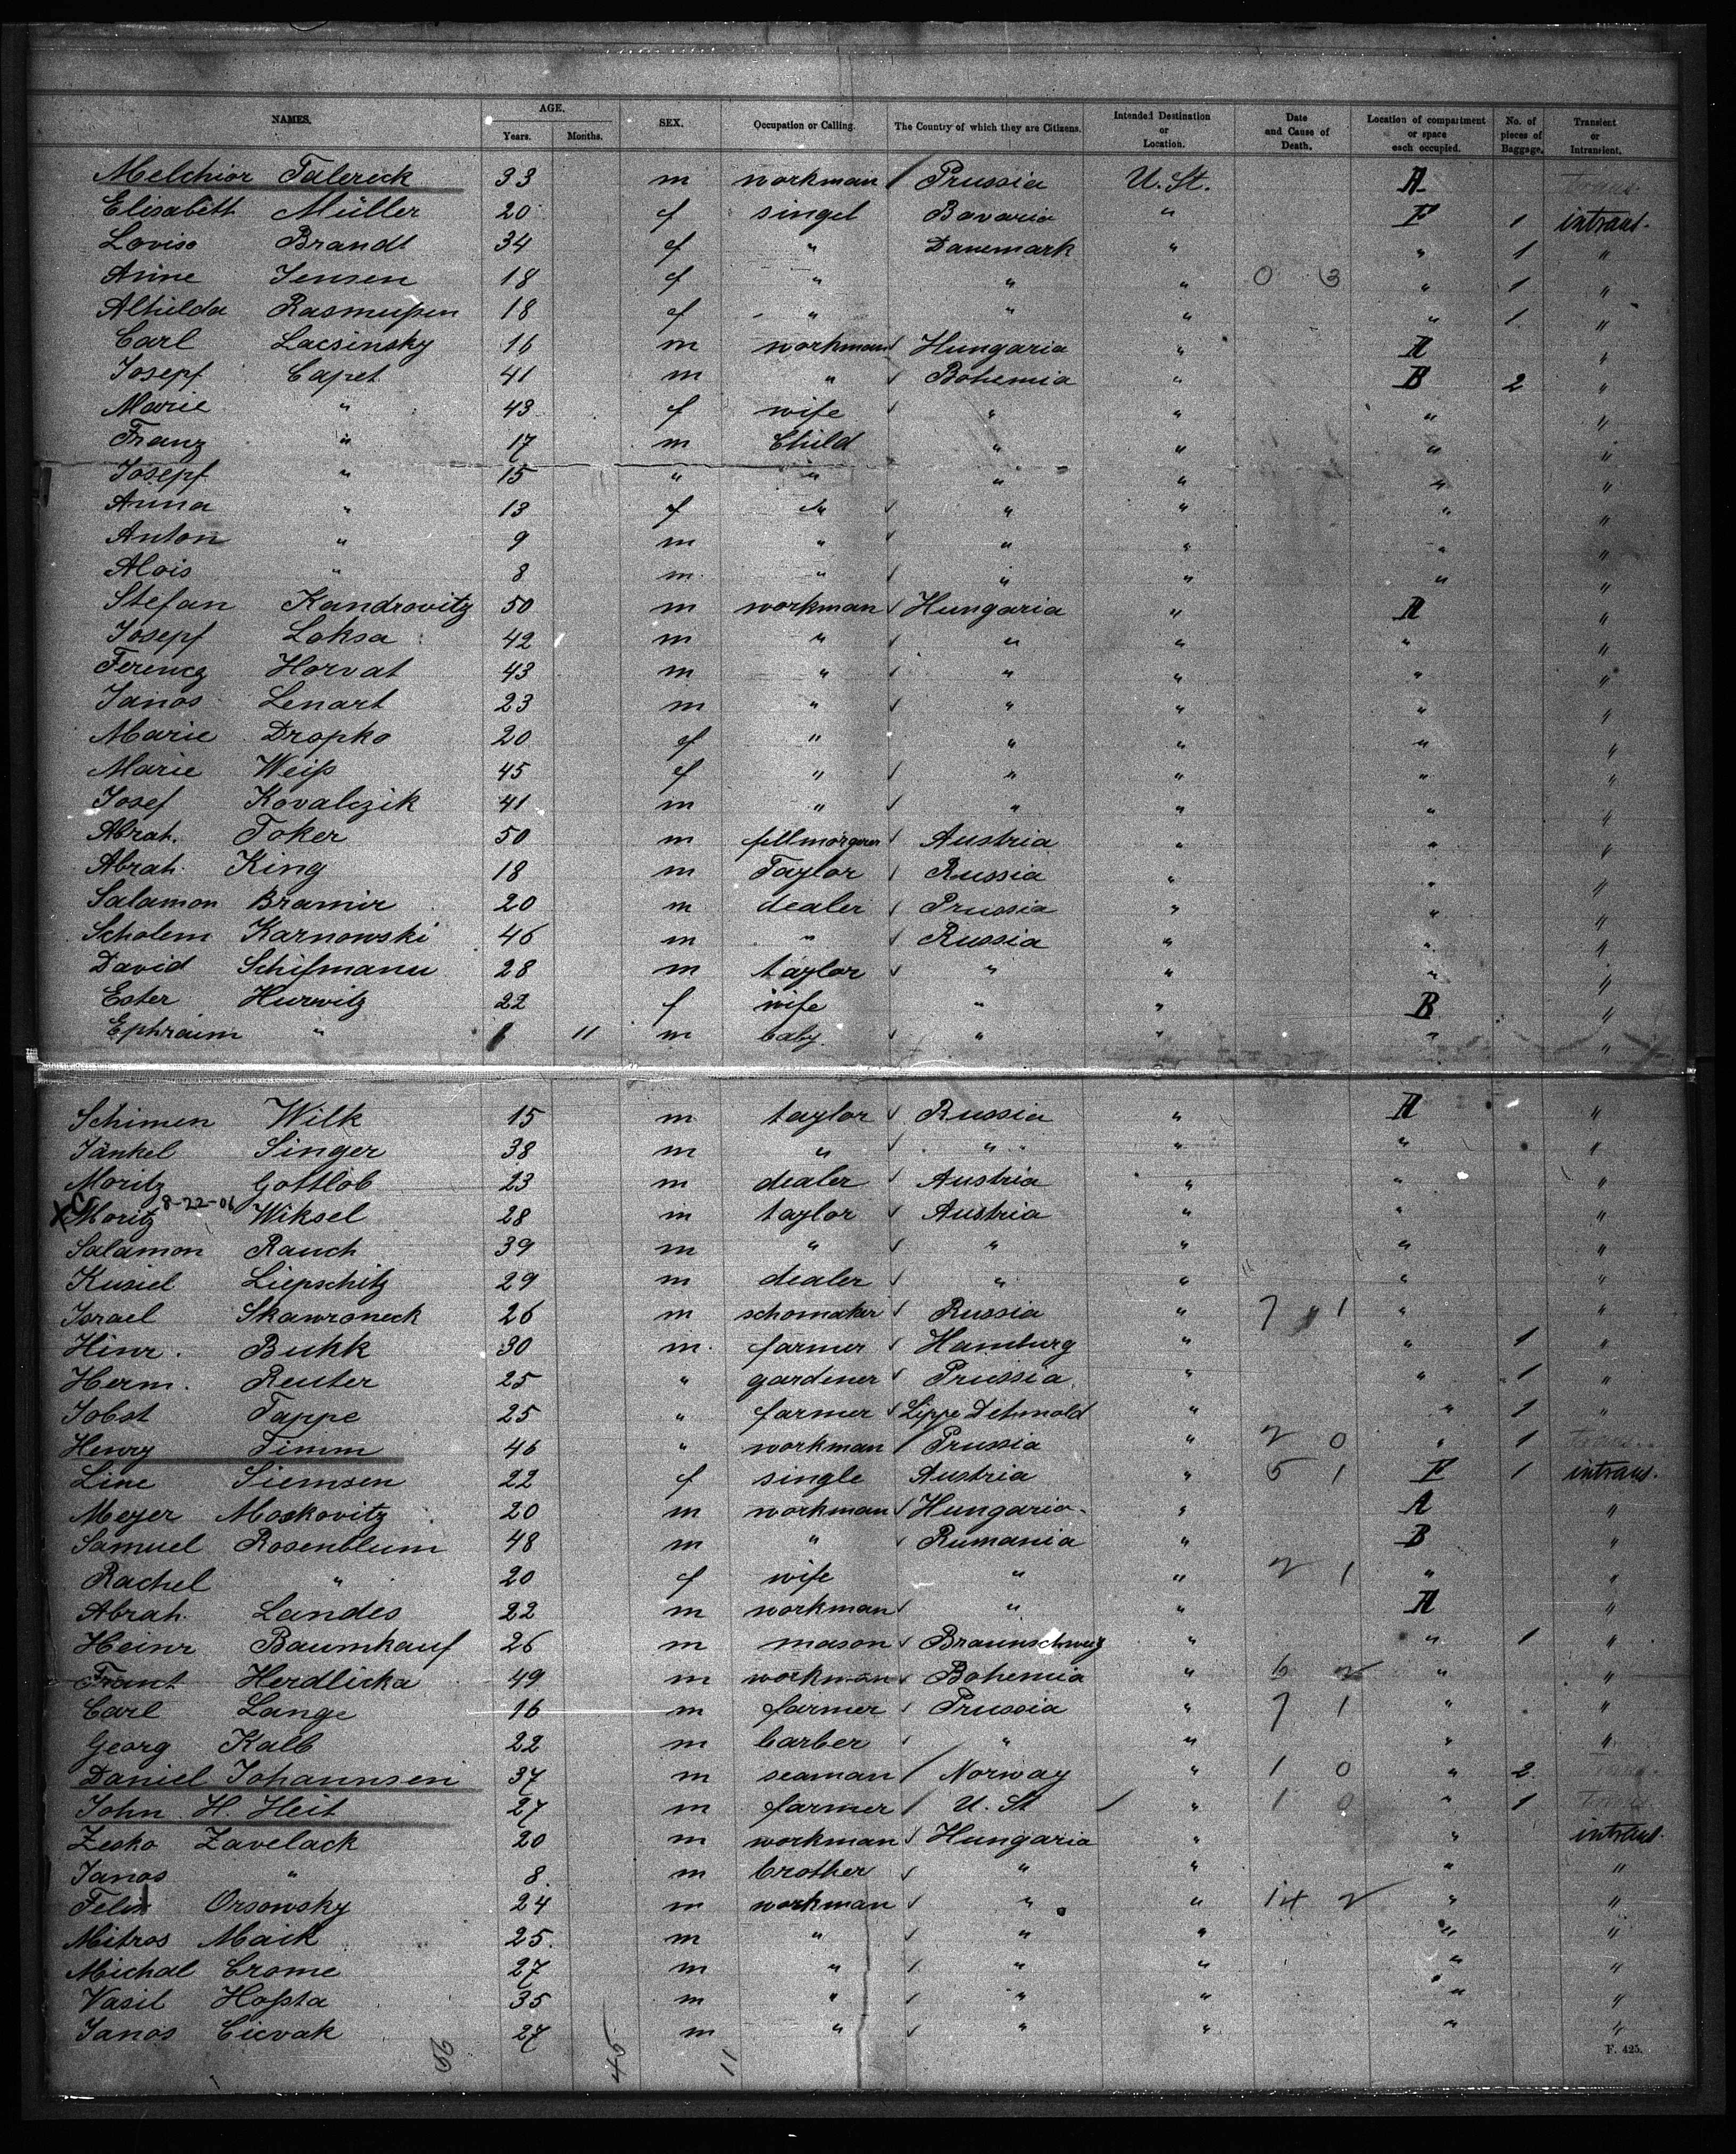 NAMES. AGE. SEX. Occupation or Calling. The Country of which they are Citizens. Intended Destination or Location. Date and Cause of Death. Location of compartment or space each occupied. No. of pieces of Baggage. Transient or Intransient.
Years. Months.
Melchior Talereck 33 m workman / Prussia U. St. A trans.
Elisabeth Müller 20 f singel Bavaria " F 1 intrant.
Lovise Brandt 34 f " Danemark " " 1 "
Anne Jensen 18 f " " " 0 3 " 1 "
Althilda Rasmußen 18 f " " " " 1 "
Carl Lacsinsky 16 m workman ✓ Hungaria " A "
Josepf Capet 41 m " ✓ Bohemia " B 2 "
Marie " 43 f wife ✓ " " " "
Franz " 17 m Child " " " "
Josepf " 15 " " " " " "
Anna " 13 f " ✓ " " " "
Anton " 9 m " ✓ " " " "
Alois " 8 m " ✓ " " " "
Stefan Kandrovitz 50 m workman ✓ Hungaria " A "
Josepf Loksa 42 m " ✓ " " " "
Ferencz Horvat 43 m " ✓ " " " "
Janos Lenart 23 m " ✓ " " " "
Marie Dropko 20 f " " " " "
Marie Weiß 45 f " ✓ " " " "
Josef Kovalczik 41 m " ✓ " " " "
Abrah. Toker 50 m ✓ Austria " " "
Abrah. King 18 m Taylor ✓ Russia " " "
Salamon Bramir 20 m dealer ✓ Prussia " " "
Scholem Karnowski 46 m " ✓ Russia " " "
David Schifmann 28 m taylor ✓ " " " "
Ester Hurwitz 22 f wife " " B "
Ephraim " 11 m baby ✓ " " " "
Schimen Wilk 15 m taylor ✓ Russia " A "
Jänkel Singer 38 m " ✓ " " " "
Moritz Gottlob 23 m dealer ✓ Austria " " "
XC Moritz 8-22-06 Wiksel 28 m taylor ✓ Austria " " "
Salamon Rauch 39 m " ✓ " " " "
Kusiel Liepschitz 29 m dealer ✓ " " " "
Israel Skawroneck 26 m schomaker ✓ Russia " 7 1 " "
Hinr. Bukk 30 m. farmer ✓ Hamburg " " 1 "
Herm. Reuter 25 " gardener ✓ Prussia " " 1 "
Jobst Tappe 25 " farmer ✓ Lippe Detmold " " 1 "
Henry Timm 46 " workman / Prussia " 2 0 " 1 trans.
Line Siemsen 22 f single Austria " 5 1 F 1 intrans.
Meyer Moskovitz 20 m workman ✓ Hungaria " A "
Samuel Rosenblum 48 m " ✓ Rumania " B "
Rachel " 20 f wife " " 2 1 " "
Abrah. Landes 22 m workman ✓ " " A "
Heinr Baumkauf 26 m mason ✓ Braunschweig " " 1 "
Frant Herdlicka 49 m workman ✓ Bohemia " 6 2 " "
Carl Lange 16 m farmer ✓ Prussia " 7 1 " "
Georg Kalb 22 m barber ✓ " " " "
Daniel Johannsen 37 m seaman / Norway " 1 0 " 2 trans.
John H. Heit 27 m farmer / U. St / " 1 0 " 1 trans
Zesko Zavelack 20 m workman ✓ Hungaria " " intrant.
Janos " 8 m brother ✓ " " " "
Felix Orsowsky 24 m workman ✓ " " 14 2 " "
Mitros Maik 25. m " ✓ " " " "
Michal Crome 27 m " ✓ " " " "
Vasil Hoßta 35 m " ✓ " " " "
Janos Cicvak 27 m " ✓ " " " "
F. 425.
56 45 11